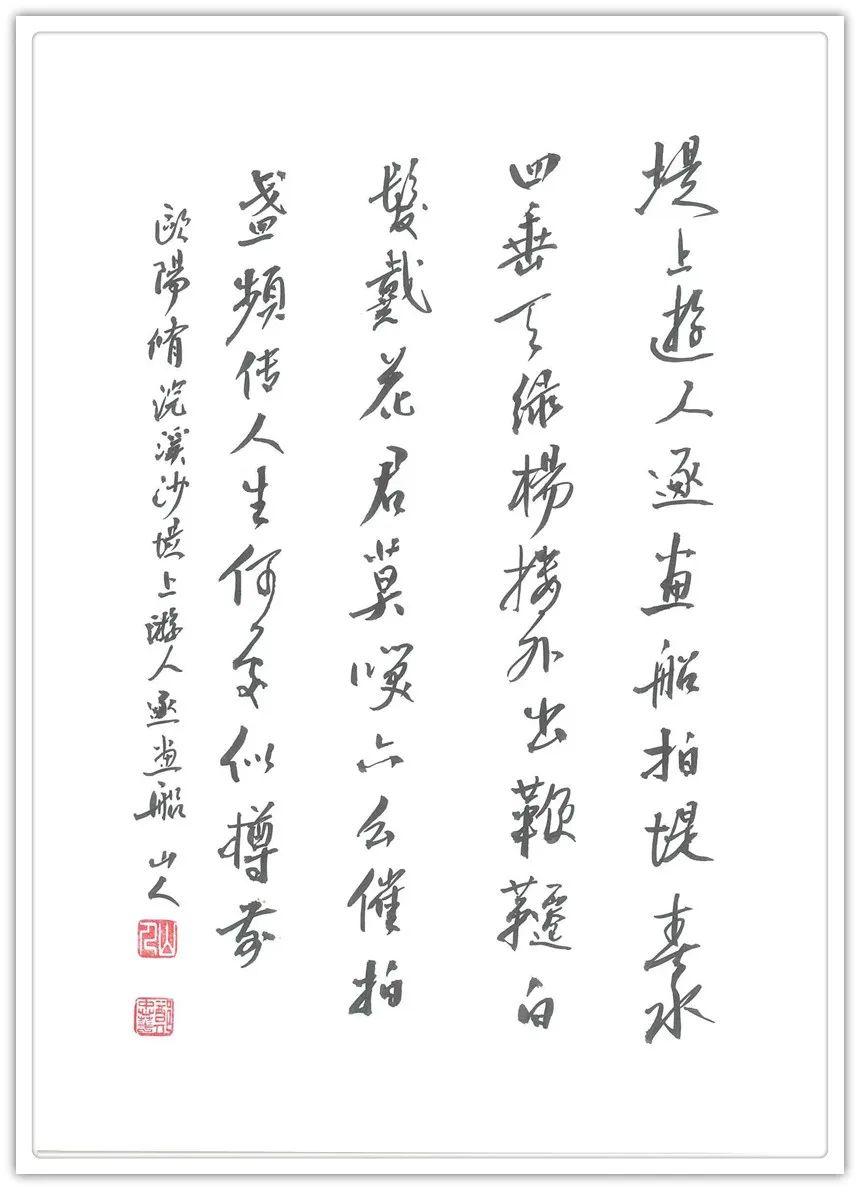 堤上遊人逐畫船拍堤春水
四垂天緑楊楼外出鞦韆白
髮戴花君莫咲六么催拍
盞頻传人生何處似樽前
歐陽脩浣溪沙堤上游人逐畫船 山人
山人